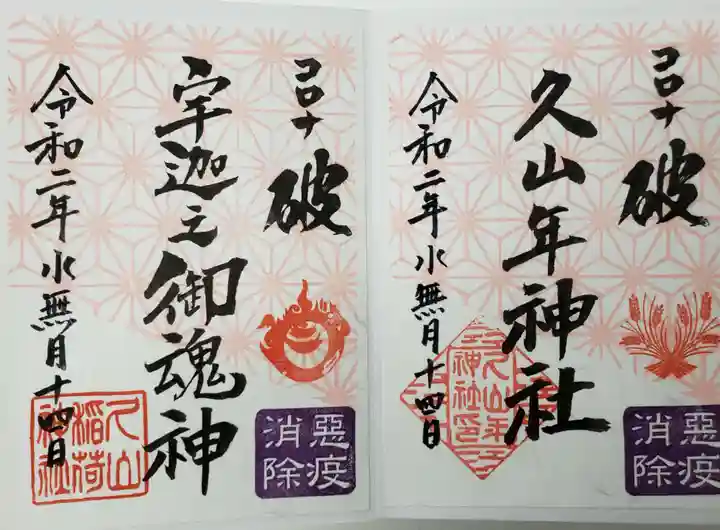 コロナ
破
久山年神社
令和二年水無月十四日
久山年神社印
惡疫
消除
コロナ
破
宇迦之御魂神
令和二年水無月十四日
久山
稲荷
神社
惡疫
消除